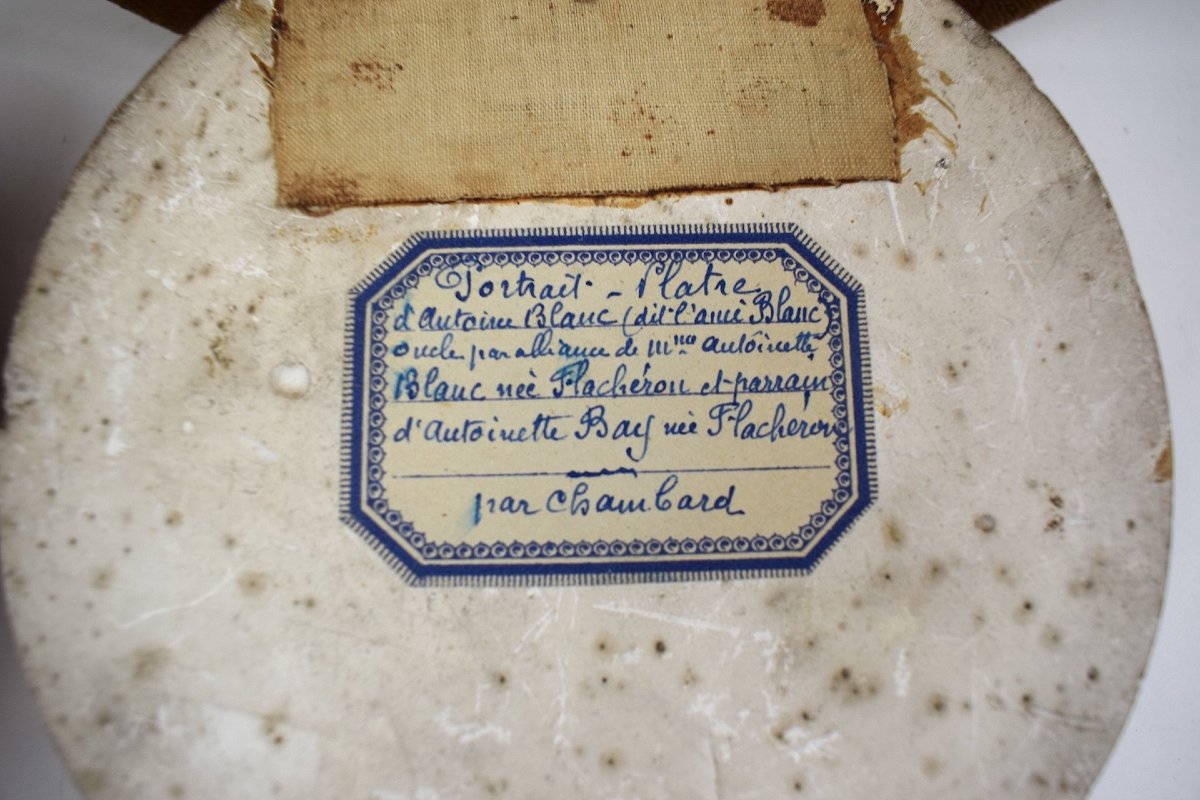 Portrait - Platre
d'Antoine Blanc (dit l'ami Blanc)
oncle par alliance de Mme Antoinette
Blanc neè Flachéron et parrain
d'Antoinette Bay neè Flachéron
par Chambard